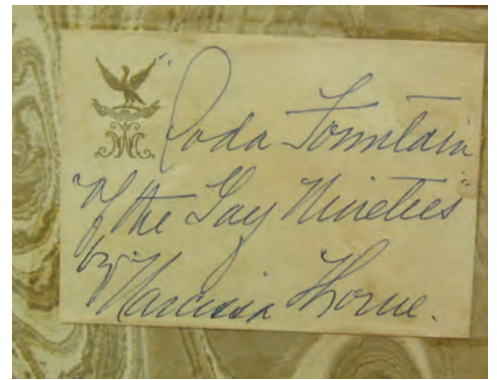 "Soda Fountain
of the Gay Nineties"
by
Narcissa Thorne.